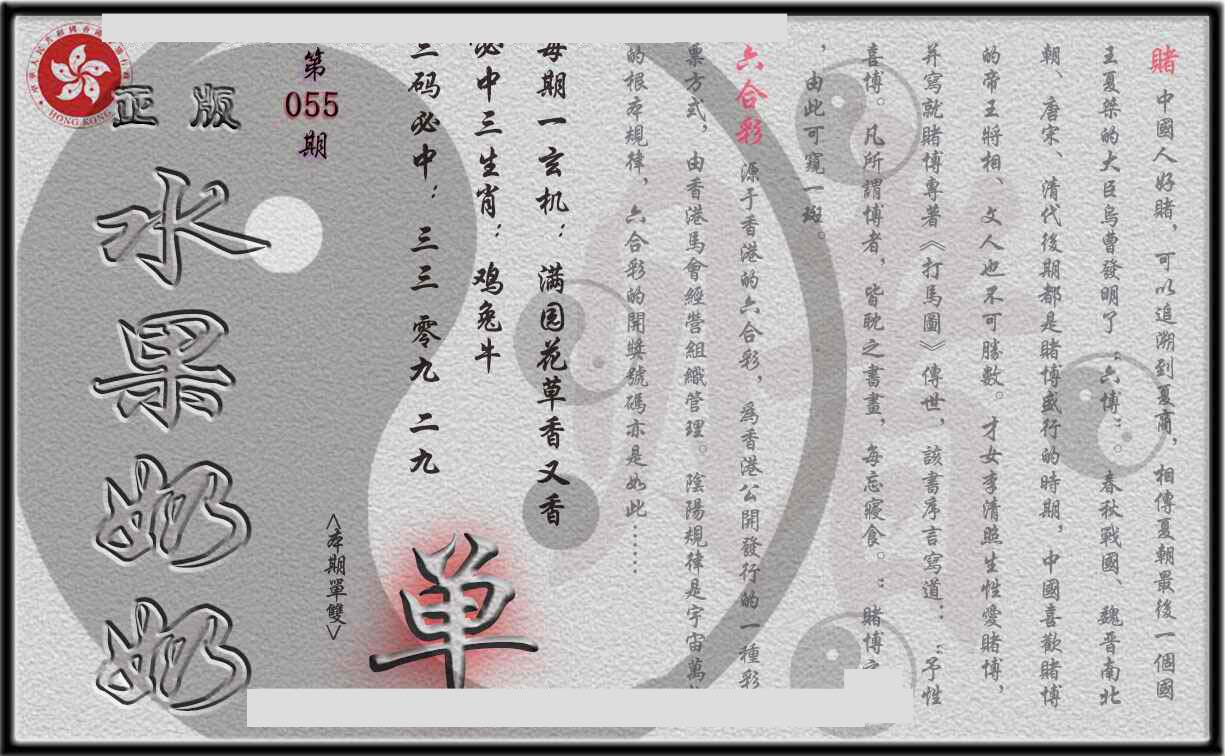 賭 中國人好賭，可以追溯到夏商，相傳夏朝最後一個國
王夏桀的大臣烏曹發明了“六博”。春秋戰國、魏晋南北
朝、唐宋、清代後期都是賭博盛行的時期，中國喜歡賭博
的帝王將相、文人也不可勝數。才女李清照生性愛賭博，
并寫就賭博專著《打馬圖》傳世，該書序言寫道：“予性
喜博。凡所謂博者，皆耽之書晝，每忘寢食。”賭博之
，由此可窺一斑。
六合彩 源于香港的六合彩，爲香港公開發行的一種彩
票方式，由香港馬會經營組織管理。陰陽規律是宇宙萬
的根本規律，六合彩的開獎號碼亦是如此……
每期一玄机：满园花草香又香
必中三生肖：鸡兔牛
三码必中：三三 零九 二九
第
055
期
<本期單雙>
单
正版
水果奶奶
HONG KONG